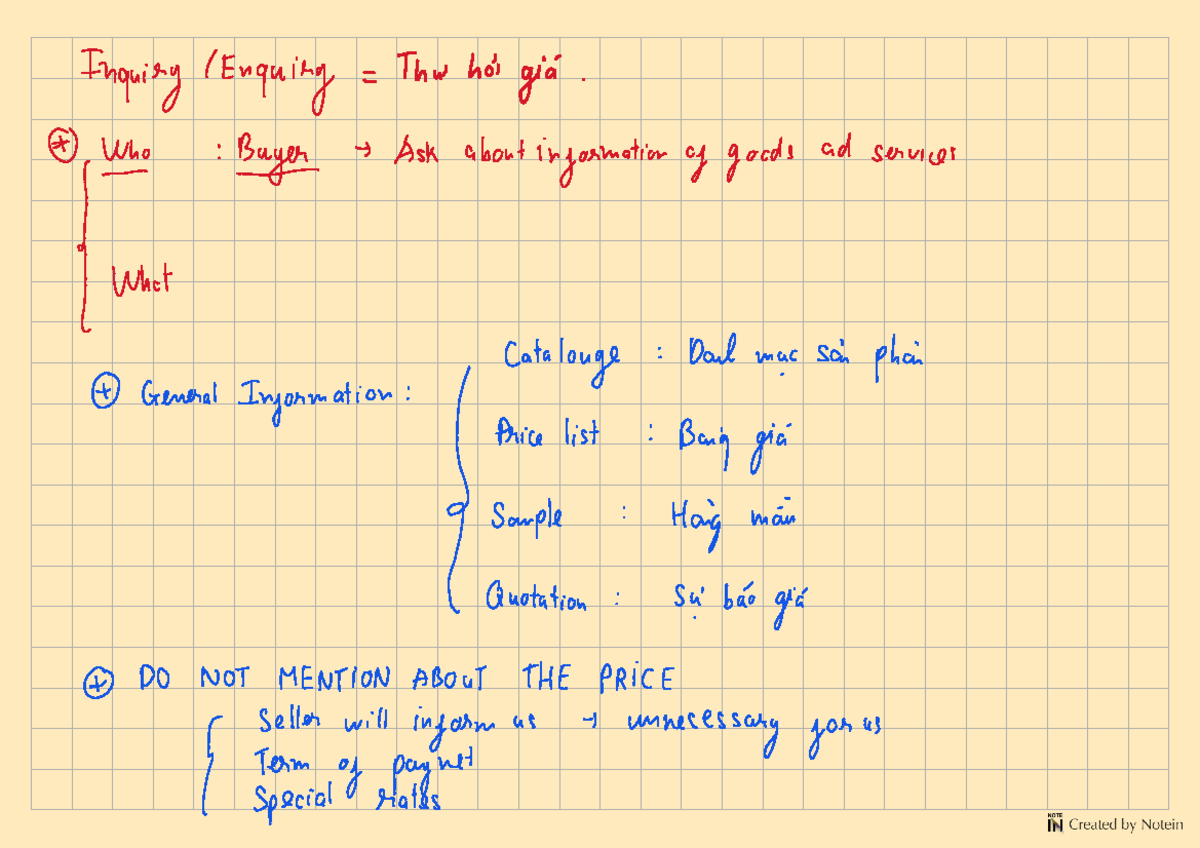 Inquiry / Enquiry = Thư hỏi giá .
+ Who : Buyer → Ask about information of goods ad services
What
Catalouge : Danh mục sản phẩm
+ General Information :
Price list : Bảng giá
Sample : Hàng mẫu
Quotation : Sự báo giá
+ DO NOT MENTION ABOUT THE PRICE
Seller will inform us → unnecessary for us
Term of paymet
Special rates
NOTE IN Created by Notein